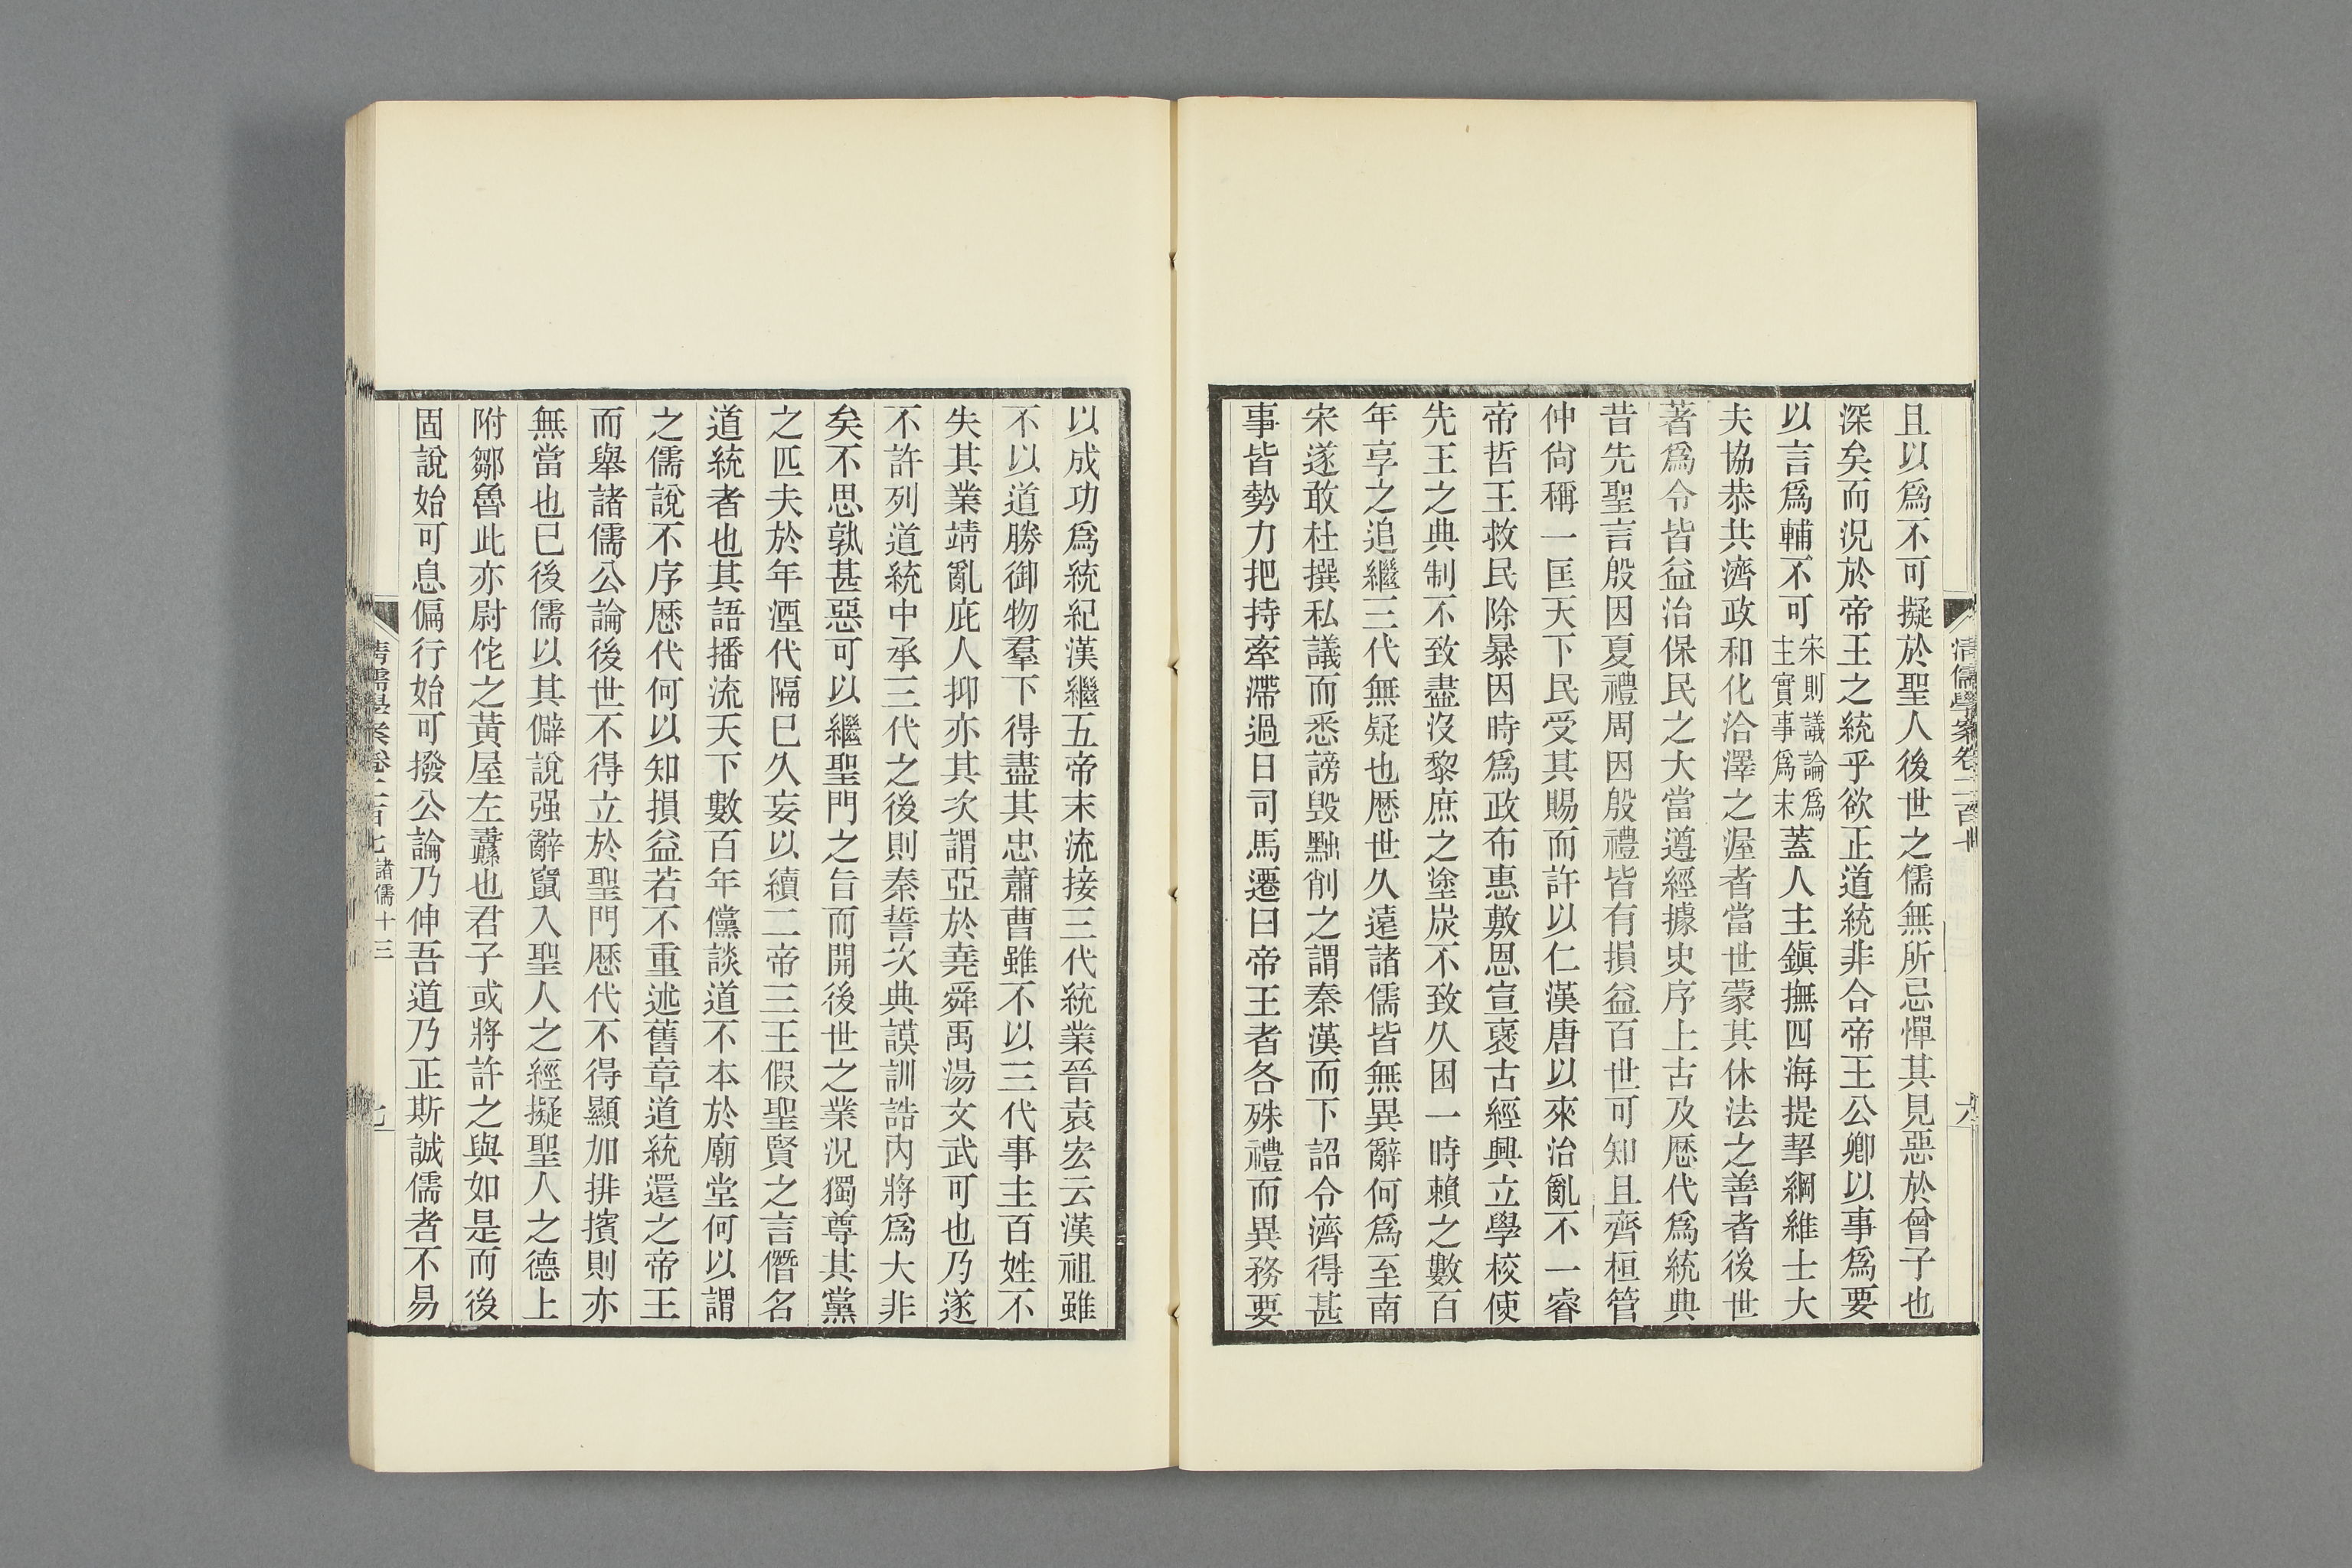 且以爲不可擬於聖人後世之儒無所忌憚其見惡於曾子也
深矣而況於帝王之統乎欲正道統非合帝王公卿以事爲要
以言爲輔不可宋則議論爲主實事爲末蓋人主鎭撫四海提挈綱維士大
夫協恭共濟政和化洽澤之渥者當世蒙其休法之善者後世
著爲令皆益治保民之大當遵經據史序上古及歷代爲統典
昔先聖言殷因夏禮周因殷禮皆有損益百世可知且齊桓管
仲尙稱一匡天下民受其賜而許以仁漢唐以來治亂不一睿
帝哲王救民除暴因時爲政布惠敷恩宣襃古經興立學校使
先王之典制不致盡沒黎庶之塗炭不致久困一時賴之數百
年享之追繼三代無疑也歷世久遠諸儒皆無異辭何爲至南
宋遂敢杜撰私議而悉謗毀黜削之謂秦漢而下詔令濟得甚
事皆勢力把持牽滯過日司馬遷曰帝王者各殊禮而異務要
清儒學案卷二百七
六
以成功爲統紀漢繼五帝末流接三代統業晉袁宏云漢祖雖
不以道勝御物羣下得盡其忠蕭曹雖不以三代事主百姓不
失其業靖亂庇人抑亦其次謂亞於堯舜禹湯文武可也乃遂
不許列道統中承三代之後則秦誓次典謨訓誥內將爲大非
矣不思孰甚惡可以繼聖門之旨而開後世之業況獨尊其黨
之匹夫於年湮代隔已久妄以續二帝三王假聖賢之言僭名
道統者也其語播流天下數百年儻談道不本於廟堂何以謂
之儒說不序歷代何以知損益若不重述舊章道統還之帝王
而舉諸儒公論後世不得立於聖門歷代不得顯加排擯則亦
無當也已後儒以其僻說强辭竄入聖人之經擬聖人之德上
附鄒魯此亦尉佗之黃屋左纛也君子或將許之與如是而後
固說始可息偏行始可撥公論乃伸吾道乃正斯誠儒者不易
清儒學案卷二百七 諸儒十三
七